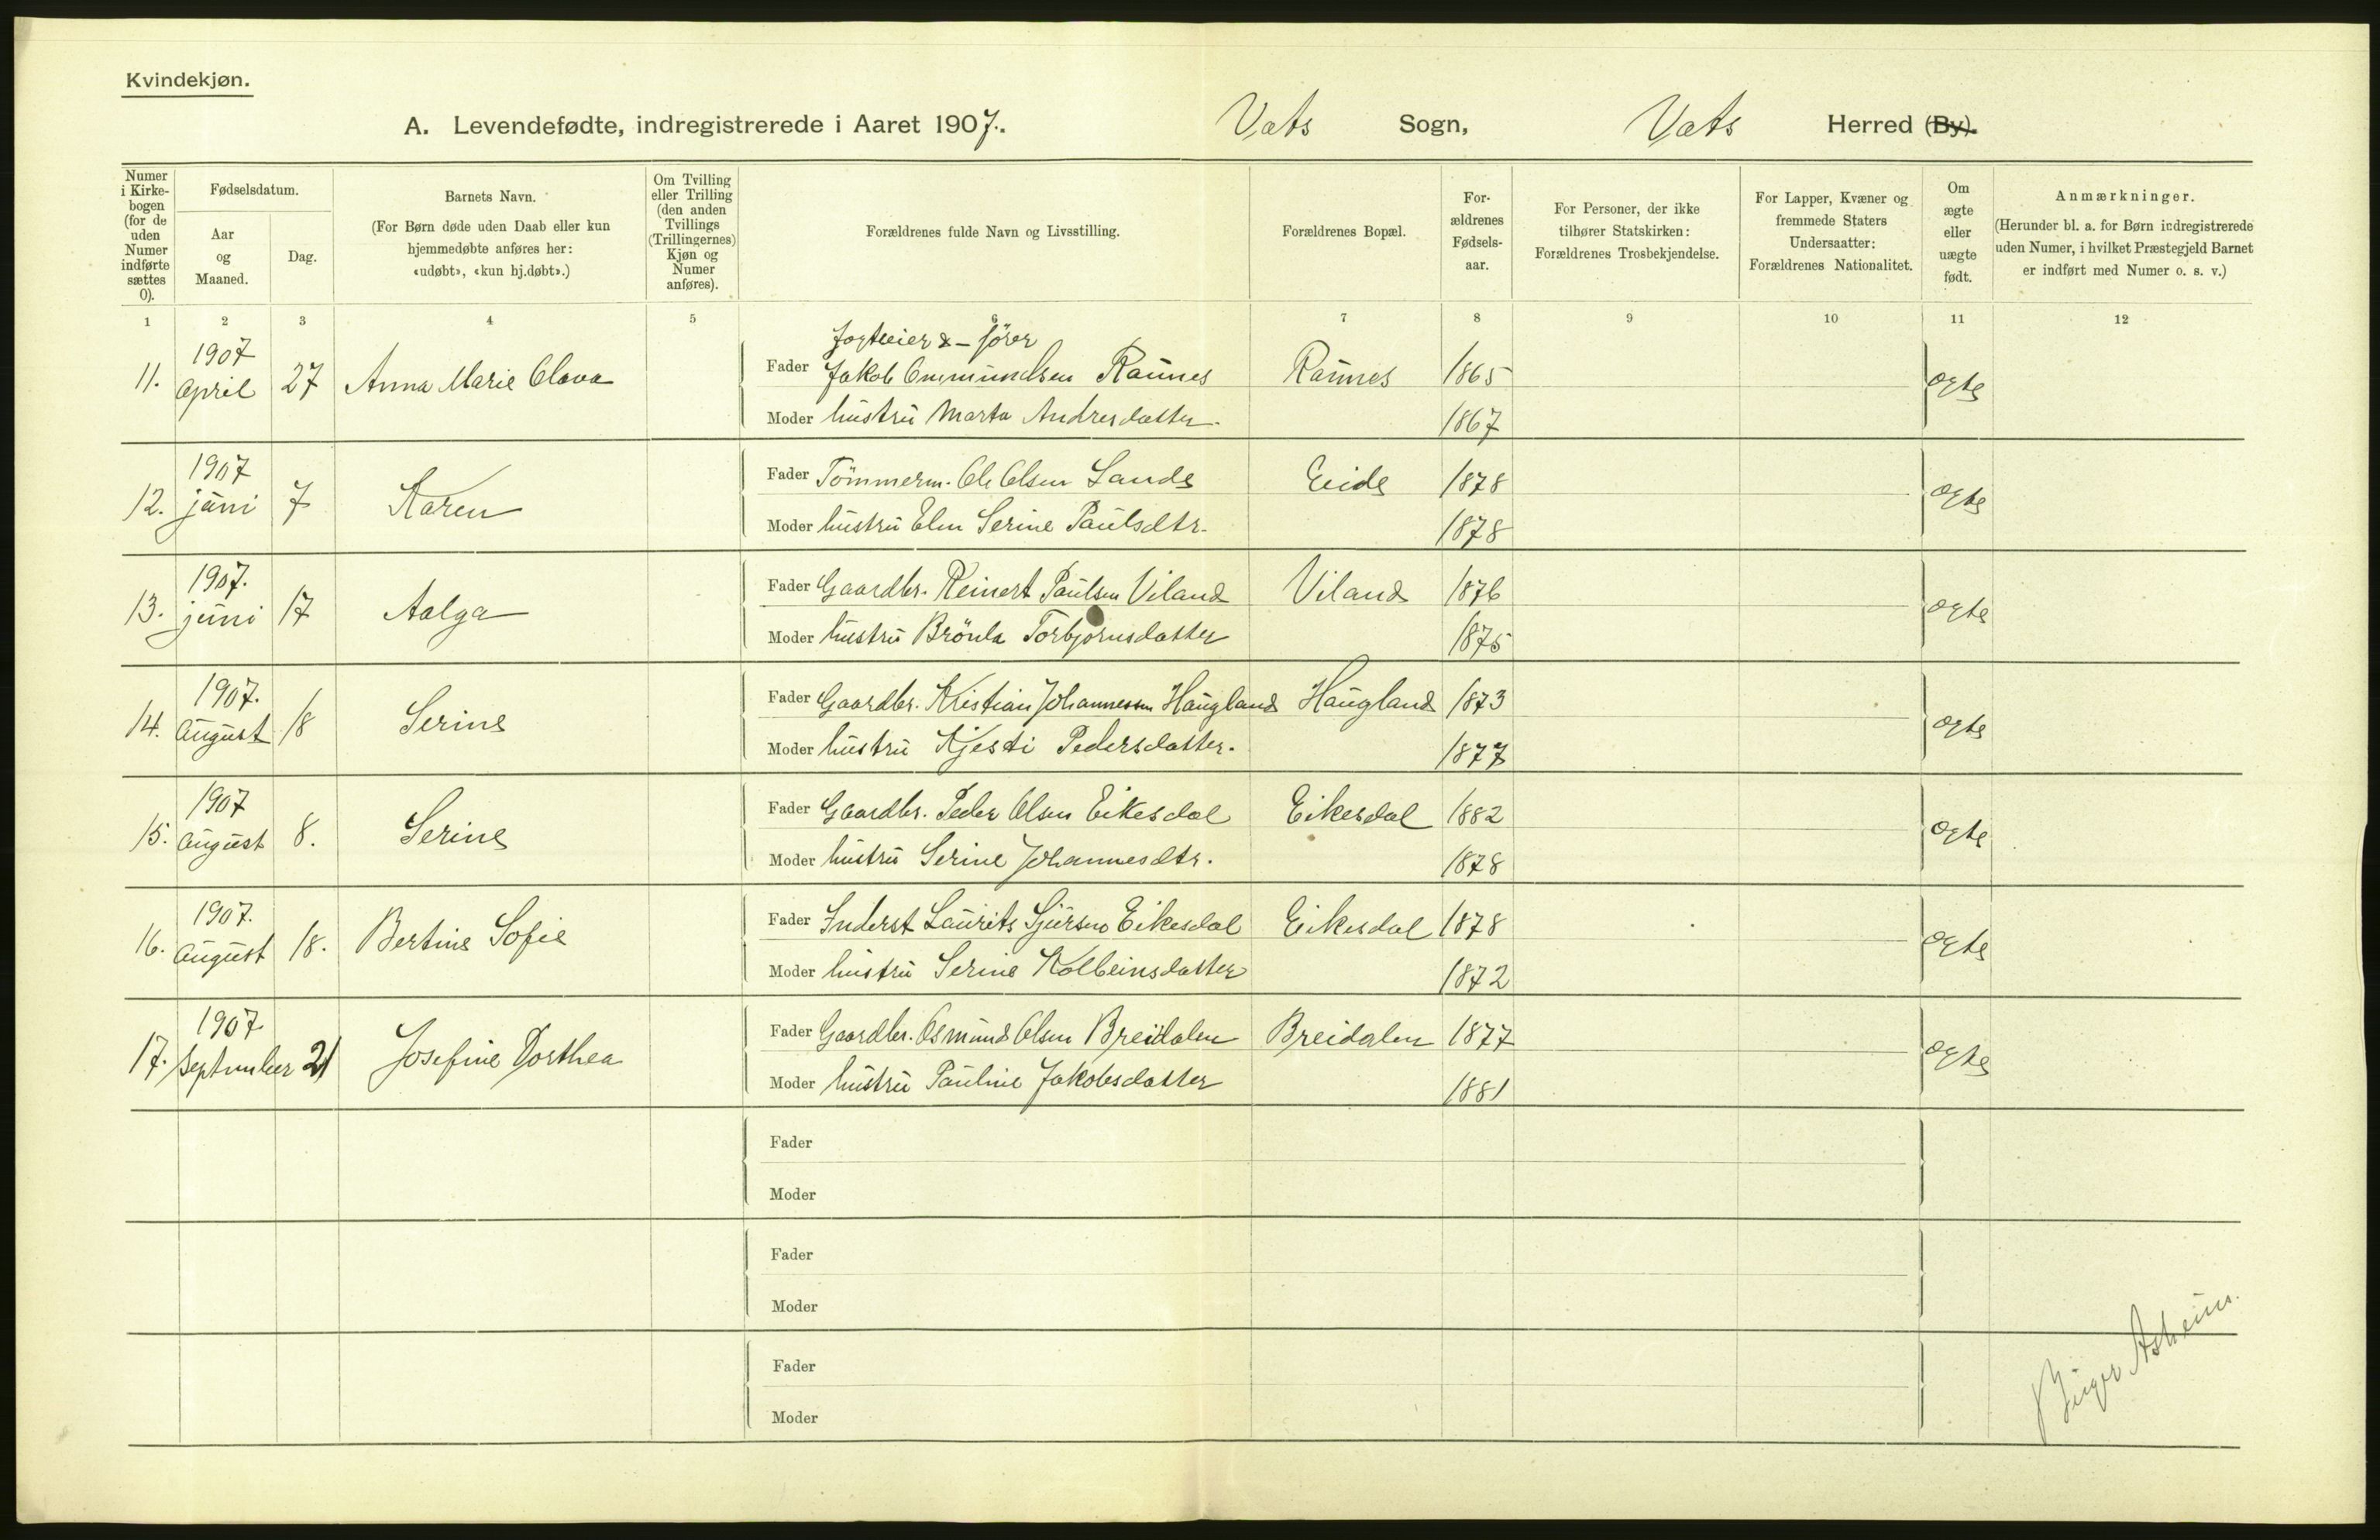 Kvindekjøn.
A. Levendefødte, indregistrerede i Aaret 1907. Vats Sogn, Vats Herred (By).
Numer i Kirkebogen (for de uden Numer indførte sættes 0).
Fødselsdatum.
Aar og Maaned.
Dag.
Barnets Navn.
(For Børn døde uden Daab eller kun hjemmedøbte anføres her: «udøbt», «kun hj.døbt».)
Om Tvilling eller Trilling (den anden Tvillings (Trillingernes) Kjøn og Numer anføres).
Forældrenes fulde Navn og Livsstilling.
Forældrenes Bopæl.
Forældrenes Fødselsaar.
For Personer, der ikke tilhører Statskirken: Forældrenes Trosbekjendelse.
For Lapper, Kvæner og fremmede Staters Undersaatter: Forældrenes Nationalitet.
Om ægte eller uægte født.
Anmærkninger.
(Herunder bl. a. for Børn indregistrerede uden Numer, i hvilket Præstegjeld Barnet er indført med Numer o. s. v.)
1 2 3 4 5 6 7 8 9 10 11 12
Jagteier & - fører
11. 1907 April 27 Anna Marie Olava Fader Jakob Ommundsen Raunes Raunes 1865 ægte
Moder hustru Marta Andresdatter. 1867
12. 1907 juni 7 Karen Fader Tömmerm. Ole Olsen Sande Eide 1878 ægte
Moder hustru Elen Serine Paulsdtr. 1878
13. 1907. juni 17 Aalga Fader Gaardbr. Reinert Paulsen Viland Viland 1876 ægte
Moder hustru Brönla Torbjörnsdatter 1875
14. 1907. August 18 Serine Fader Gaardbr. Kristian Johannessen Haugland Haugland 1873 ægte
Moder hustru Kjesti Pedersdatter. 1877
15. 1907 August 8. Serine Fader Gaardbr. Peder Olsen Eikesdal Eikesdal 1882 ægte
Moder hustru Serine Johannesdtr. 1878
16. 1907. August 18. Bertine Sofie Fader Inderst Laurits Sjursen Eikesdal Eikesdal 1878 ægte
Moder hustru Serine Kolbeinsdatter 1872
17. 1907 September 21 Josefine Dorthea Fader Gaardbr. Osmund Olsen Breidalen Breidalen 1877 ægte
Moder hustru Pauline Jakobsdatter 1881
Fader
Moder
Fader
Moder
Fader
Moder